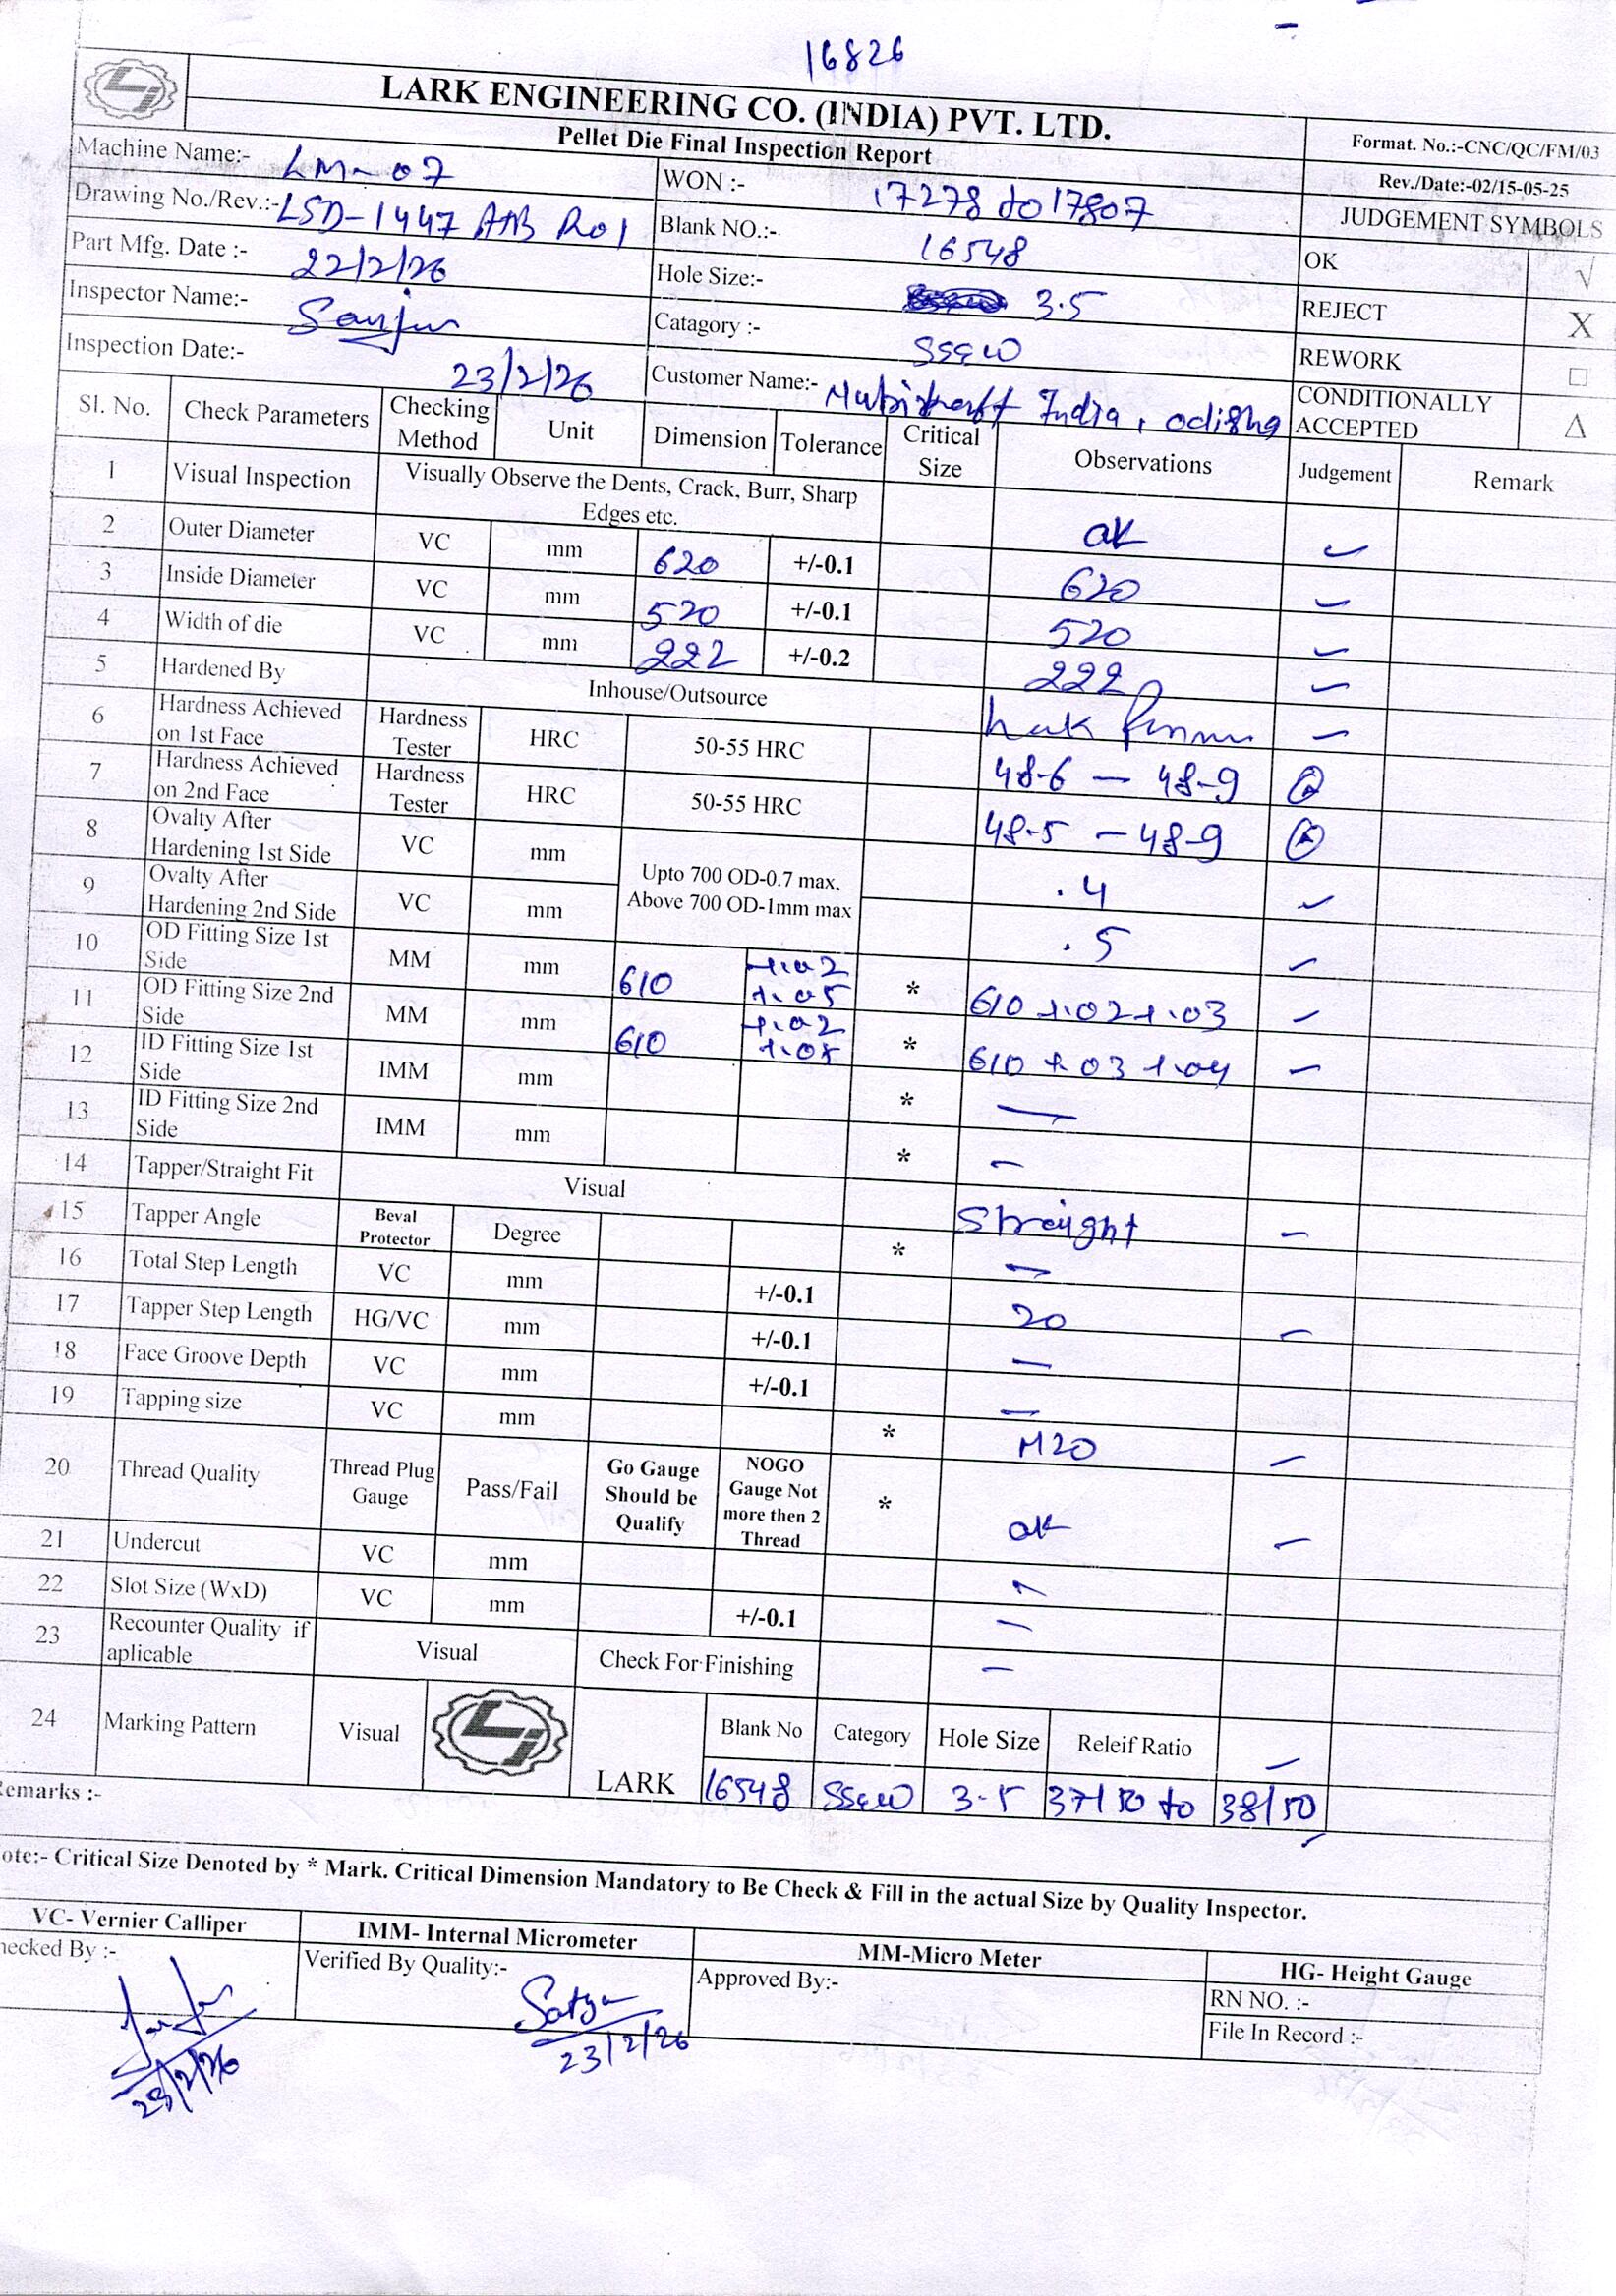 16826
LARK ENGINEERING CO. (INDIA) PVT. LTD.
Pellet Die Final Inspection Report
Format. No.:-CNC/QC/FM/03
Rev./Date:-02/15-05-25
Machine Name:- LM-07
WON :- 17278 to 17807
JUDGEMENT SYMBOLS
Drawing No./Rev.:- LSD-1447 AAB R01
Blank NO.:- 16548
OK √
Part Mfg. Date :- 22/2/26
Hole Size:- 3.5
REJECT X
Inspector Name:-
Catagory :-
REWORK □
Inspection Date:- 23/2/26
Customer Name:- India, odisha
CONDITIONALLY ACCEPTED Δ
Sl. No. Check Parameters Checking Method Unit Dimension Tolerance Critical Size Observations Judgement Remark
1 Visual Inspection Visually Observe the Dents, Crack, Burr, Sharp Edges etc. ok
2 Outer Diameter VC mm 620 +/-0.1 620
3 Inside Diameter VC mm 520 +/-0.1 520
4 Width of die VC mm 222 +/-0.2 222
5 Hardened By Inhouse/Outsource
6 Hardness Achieved on 1st Face Hardness Tester HRC 50-55 HRC 48-6 — 48-9
7 Hardness Achieved on 2nd Face Hardness Tester HRC 50-55 HRC 48-5 — 48-9
8 Ovalty After Hardening 1st Side VC mm Upto 700 OD-0.7 max, Above 700 OD-1mm max .4
9 Ovalty After Hardening 2nd Side VC mm .5
10 OD Fitting Size 1st Side MM mm 610 +.02 +.05 * 610 +.02 +.03
11 OD Fitting Size 2nd Side MM mm 610 +.02 +.05 * 610 +.03 +.04
12 ID Fitting Size 1st Side IMM mm * —
13 ID Fitting Size 2nd Side IMM mm * —
14 Tapper/Straight Fit Visual Straight
15 Tapper Angle Beval Protector Degree * —
16 Total Step Length VC mm +/-0.1 20
17 Tapper Step Length HG/VC mm +/-0.1 —
18 Face Groove Depth VC mm +/-0.1 —
19 Tapping size VC mm * M20
20 Thread Quality Thread Plug Gauge Pass/Fail Go Gauge Should be Qualify NOGO Gauge Not more then 2 Thread * ok
21 Undercut VC mm —
22 Slot Size (WxD) VC mm +/-0.1 —
23 Recounter Quality if aplicable Visual Check For Finishing —
24 Marking Pattern Visual LARK Blank No Category Hole Size Releif Ratio
16548 3.5 37/50 to 38/50
emarks :-
ote:- Critical Size Denoted by * Mark. Critical Dimension Mandatory to Be Check & Fill in the actual Size by Quality Inspector.
VC- Vernier Calliper IMM- Internal Micrometer MM-Micro Meter HG- Height Gauge
hecked By :- Verified By Quality:- Approved By:- RN NO. :-
File In Record :-
Satya
23/2/26 23/2/26